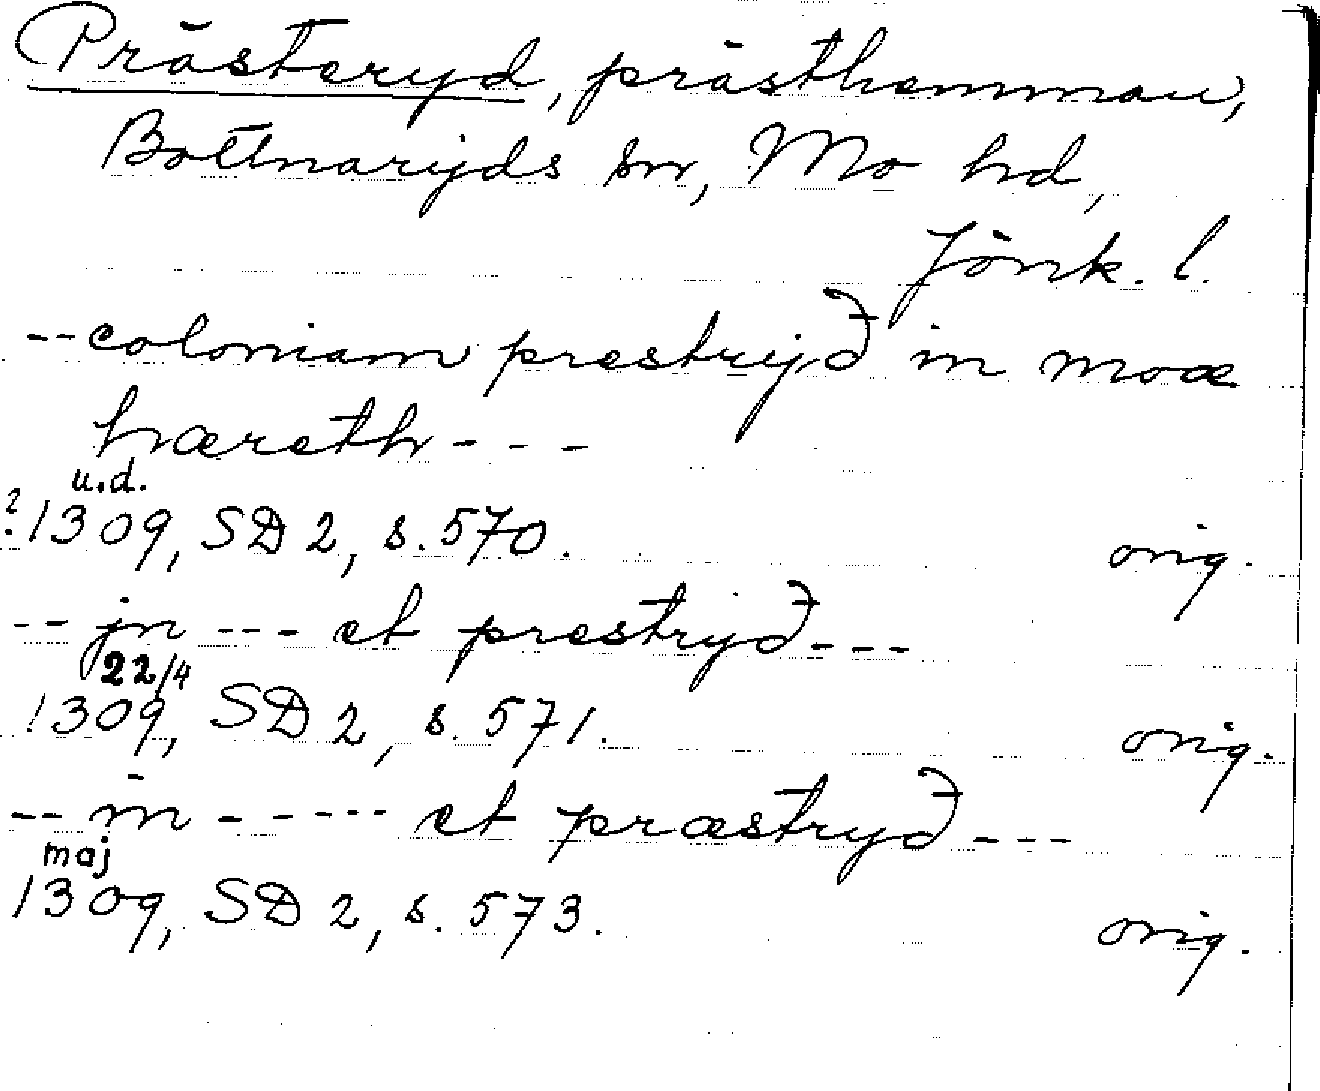 Prästeryd, prästhemman,
Bottnaryds sn, Mo hd,
Jönk. l.
-- coloniam prestryð in moæ
hæreth - - -
u.d.
? 1309, SD 2, s. 570.   orig.
-- jn --- et prestryð ---
22/4
1309, SD 2, s. 571.   orig.
-- in - - - - - et præstryð ---
maj
1309, SD 2, s. 573.   orig.